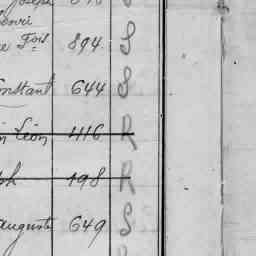 Joseph
e Fois 894 S
nstant 644 S
n Léon 416 R
ph 198 R
auguste 649 S